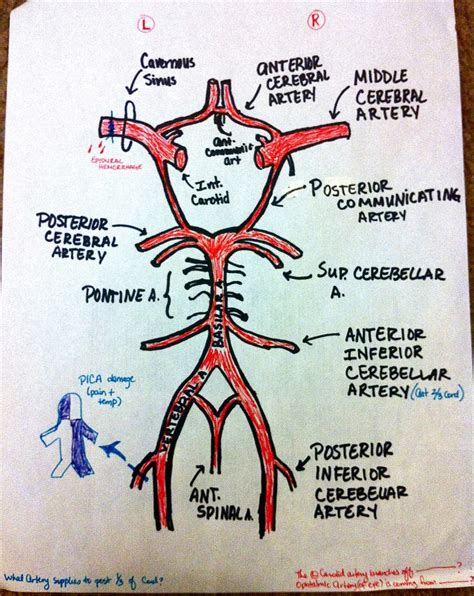 L
R
Cavernous
Sinus
ANTERIOR
CEREBRAL
ARTERY
MIDDLE
CEREBRAL
ARTERY
Ant.
Communic
art
EPIDURAL
HEMORRHAGE
Int.
Carotid
POSTERIOR
COMMUNICATING
ARTERY
POSTERIOR
CEREBRAL
ARTERY
SUP. CEREBELLAR
A.
PONTINE A.
BASILAR A.
ANTERIOR
INFERIOR
CEREBELLAR
ARTERY (Ant 2/3 Cord)
PICA damage
(pain +
temp)
VERTEBRAL A.
ANT.
SPINAL A.
POSTERIOR
INFERIOR
CEREBELLAR
ARTERY
What Artery supplies to post 1/3 of Cord?
The Carotid artery branches off ?
Opthalmic Artery (of eye) is coming from ?